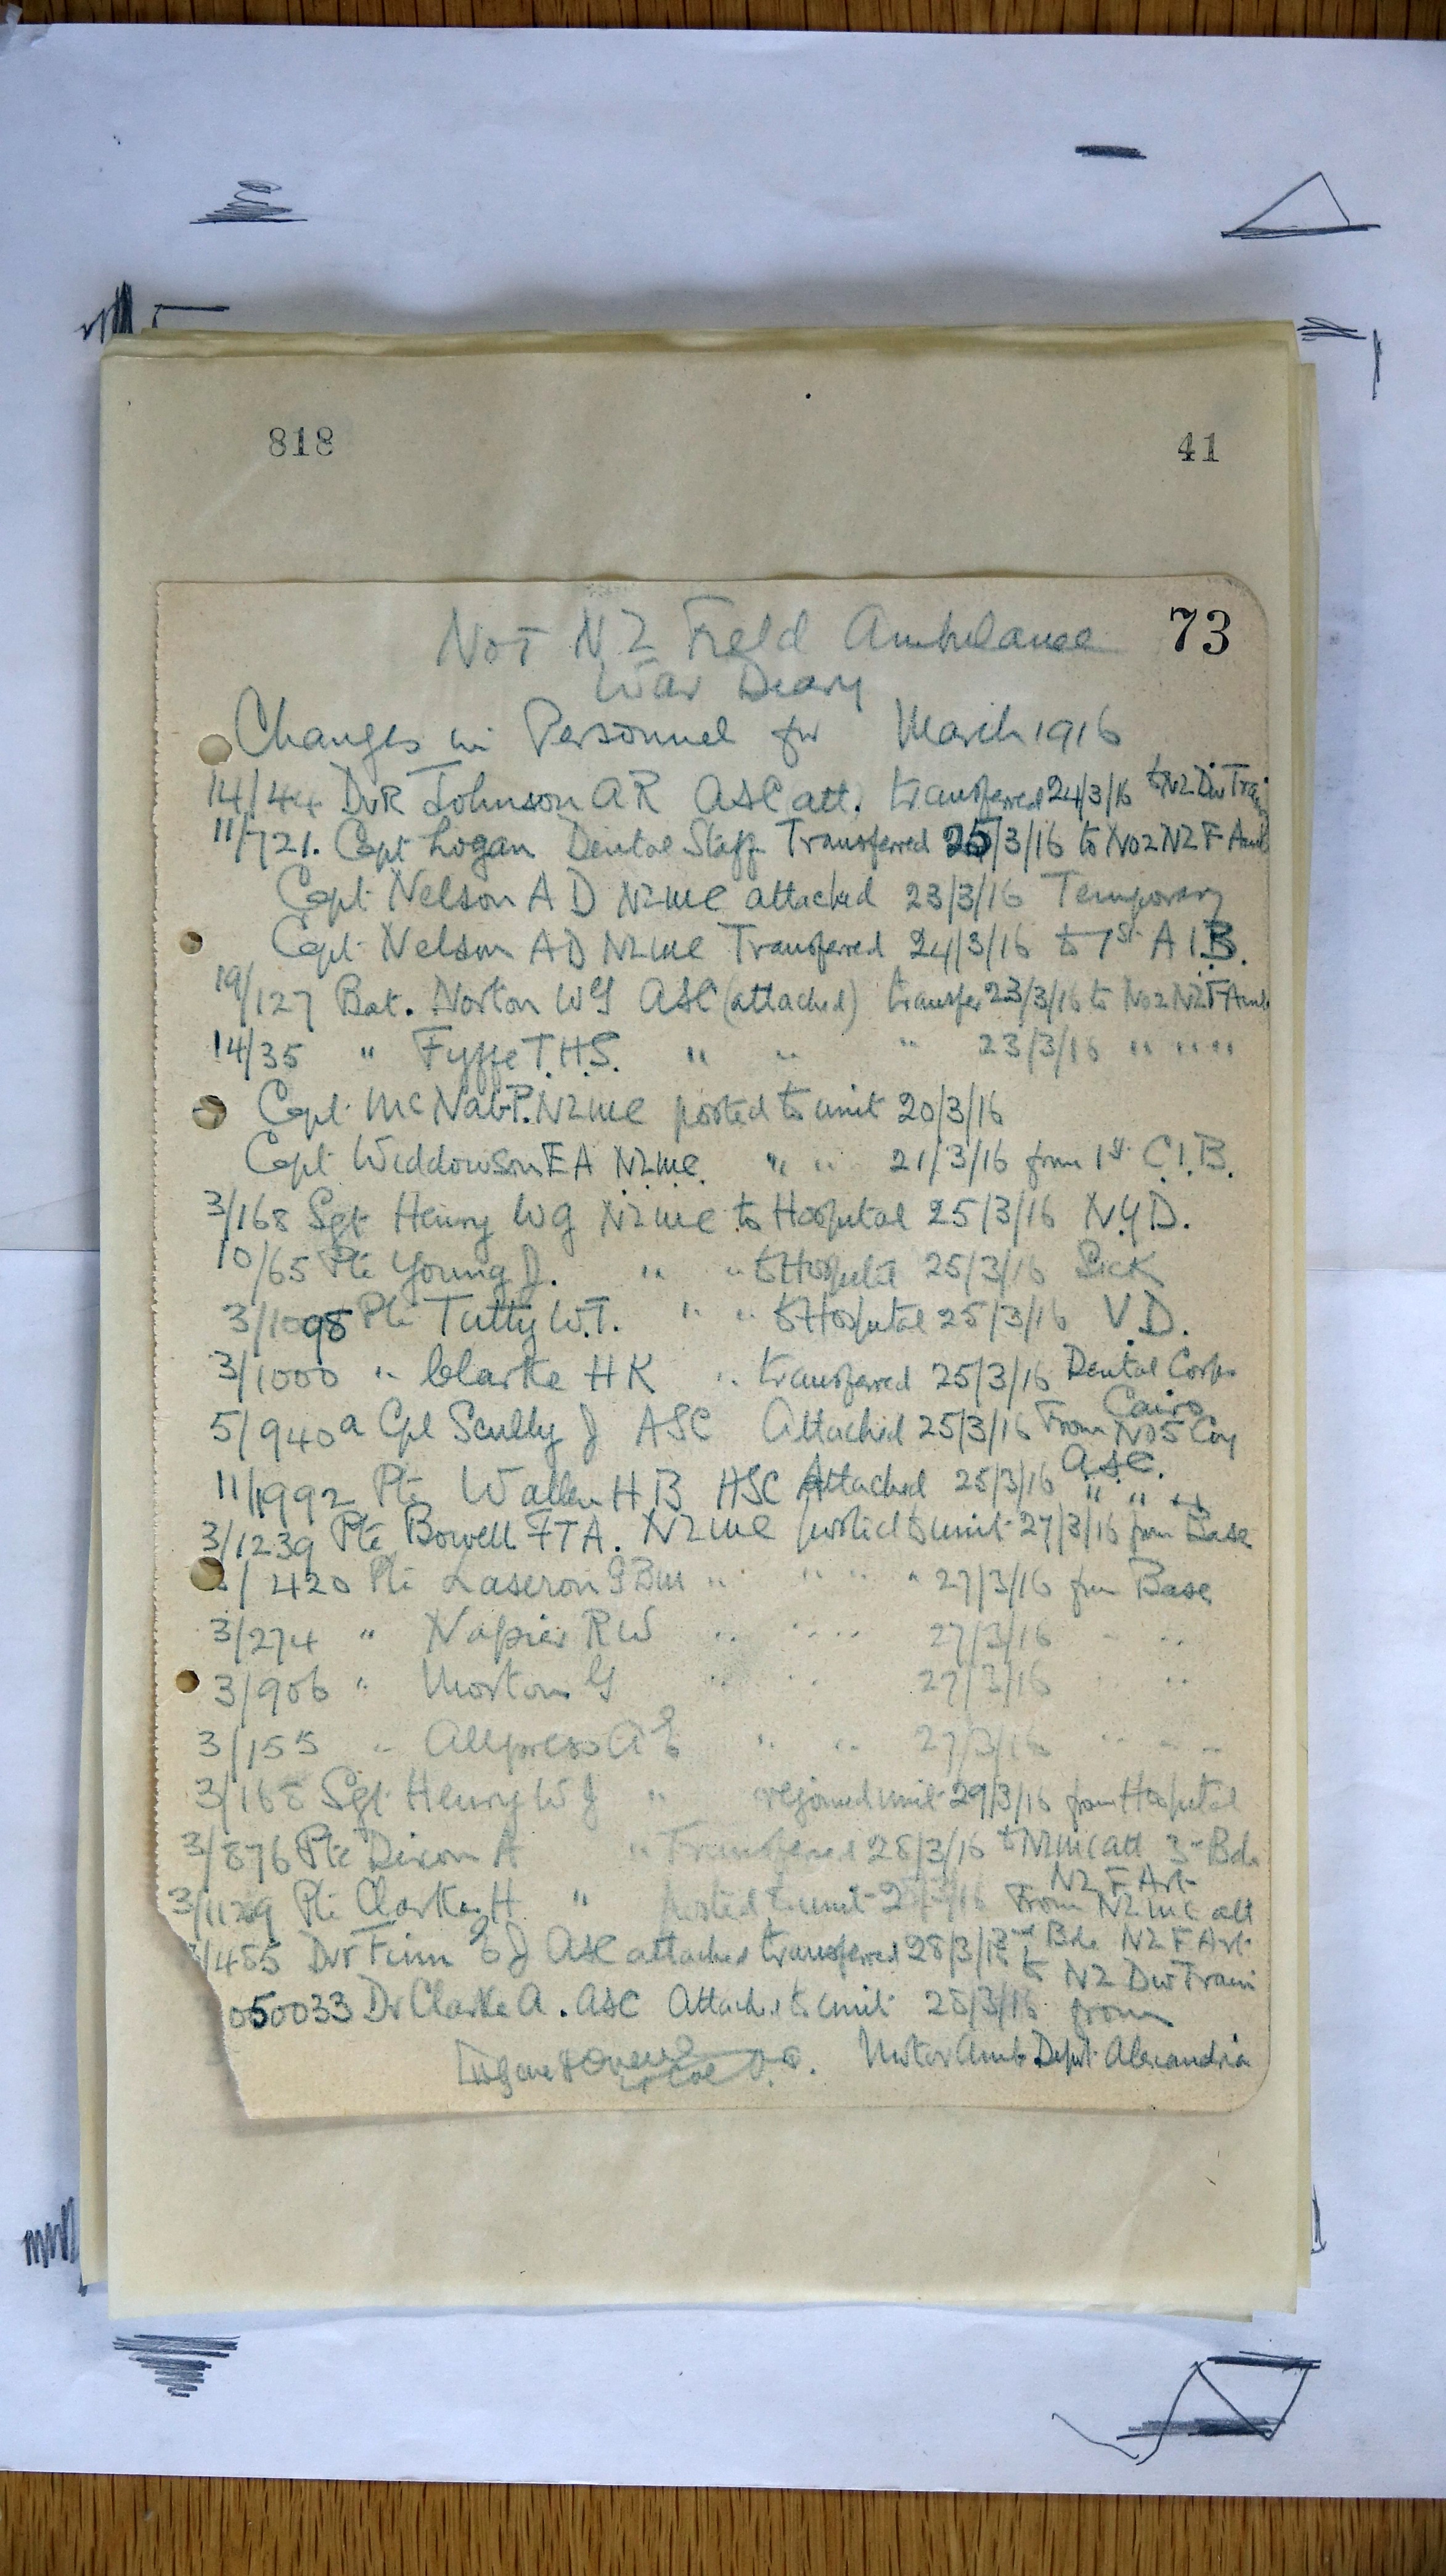 818 41
73
No1 NZ Field Ambulance
War Diary
Changes in Personnel for March 1916
14/44 Dvr Johnson AR ASC att. transferred 24/3/16 to NZ Div Train
11/721. Capt Logan Dental Staff Transferred 25/3/16 to No2 NZ F Amb
Capt Nelson A D NZMC attached 23/3/16 Temporary
Capt Nelson AD NZMC Transferred 24/3/16 to 1st A I B.
19/127 Bat. Norton WG ASC (attached) transfer 23/3/16 to No2 NZ F Amb
14/35 " Fyffe T.H.S. " " " 23/3/16 " " " "
Capt McNab P. NZMC posted to unit 20/3/16
Capt Widdowson EA NZMC. " " 21/3/16 from 1st C.I.B.
3/168 Sgt Henry WG NZMC to Hospital 25/3/16 N.Y.D.
10/65 Pte Young J. " " to Hospital 25/3/16 Sick
3/1098 Pte Tutty W.T. " " to Hospital 25/3/16 V.D.
3/1000 " Clarke HK " transferred 25/3/16 Dental Corps
Cairo
5/940a Cpl Scully J ASC Attached 25/3/16 From No5 Coy
A.S.C.
11/1992 Pte Waller H B ASC Attached 25/3/16 " " "
3/1239 Pte Bowell FTA. NZMC posted to unit 27/3/16 from Base
/420 Pte Laseron " " " " 27/3/16 from Base
3/274 " Napier RW " " " 27/3/16 " "
3/906 " Morton G " " 27/3/16 " "
3/155 " Allpress A E " " 27/3/16 " " "
3/168 Sgt Henry W G " rejoined unit 29/3/16 from Hospital
3/876 Pte Dixon A " Transferred 28/3/16 to NZMC att 3rd Bde
NZ F Art
Pte Clarke H " posted to unit From NZMC att
2nd Bde NZ F Art
/455 Dvr Finn E J ASC attached transferred 28/3/16 to NZ Div Train
050033 Dr Clarke A. ASC Attached to unit 28/3/16 from
Motor Amb Depot Alexandria
Lt Col O.C.